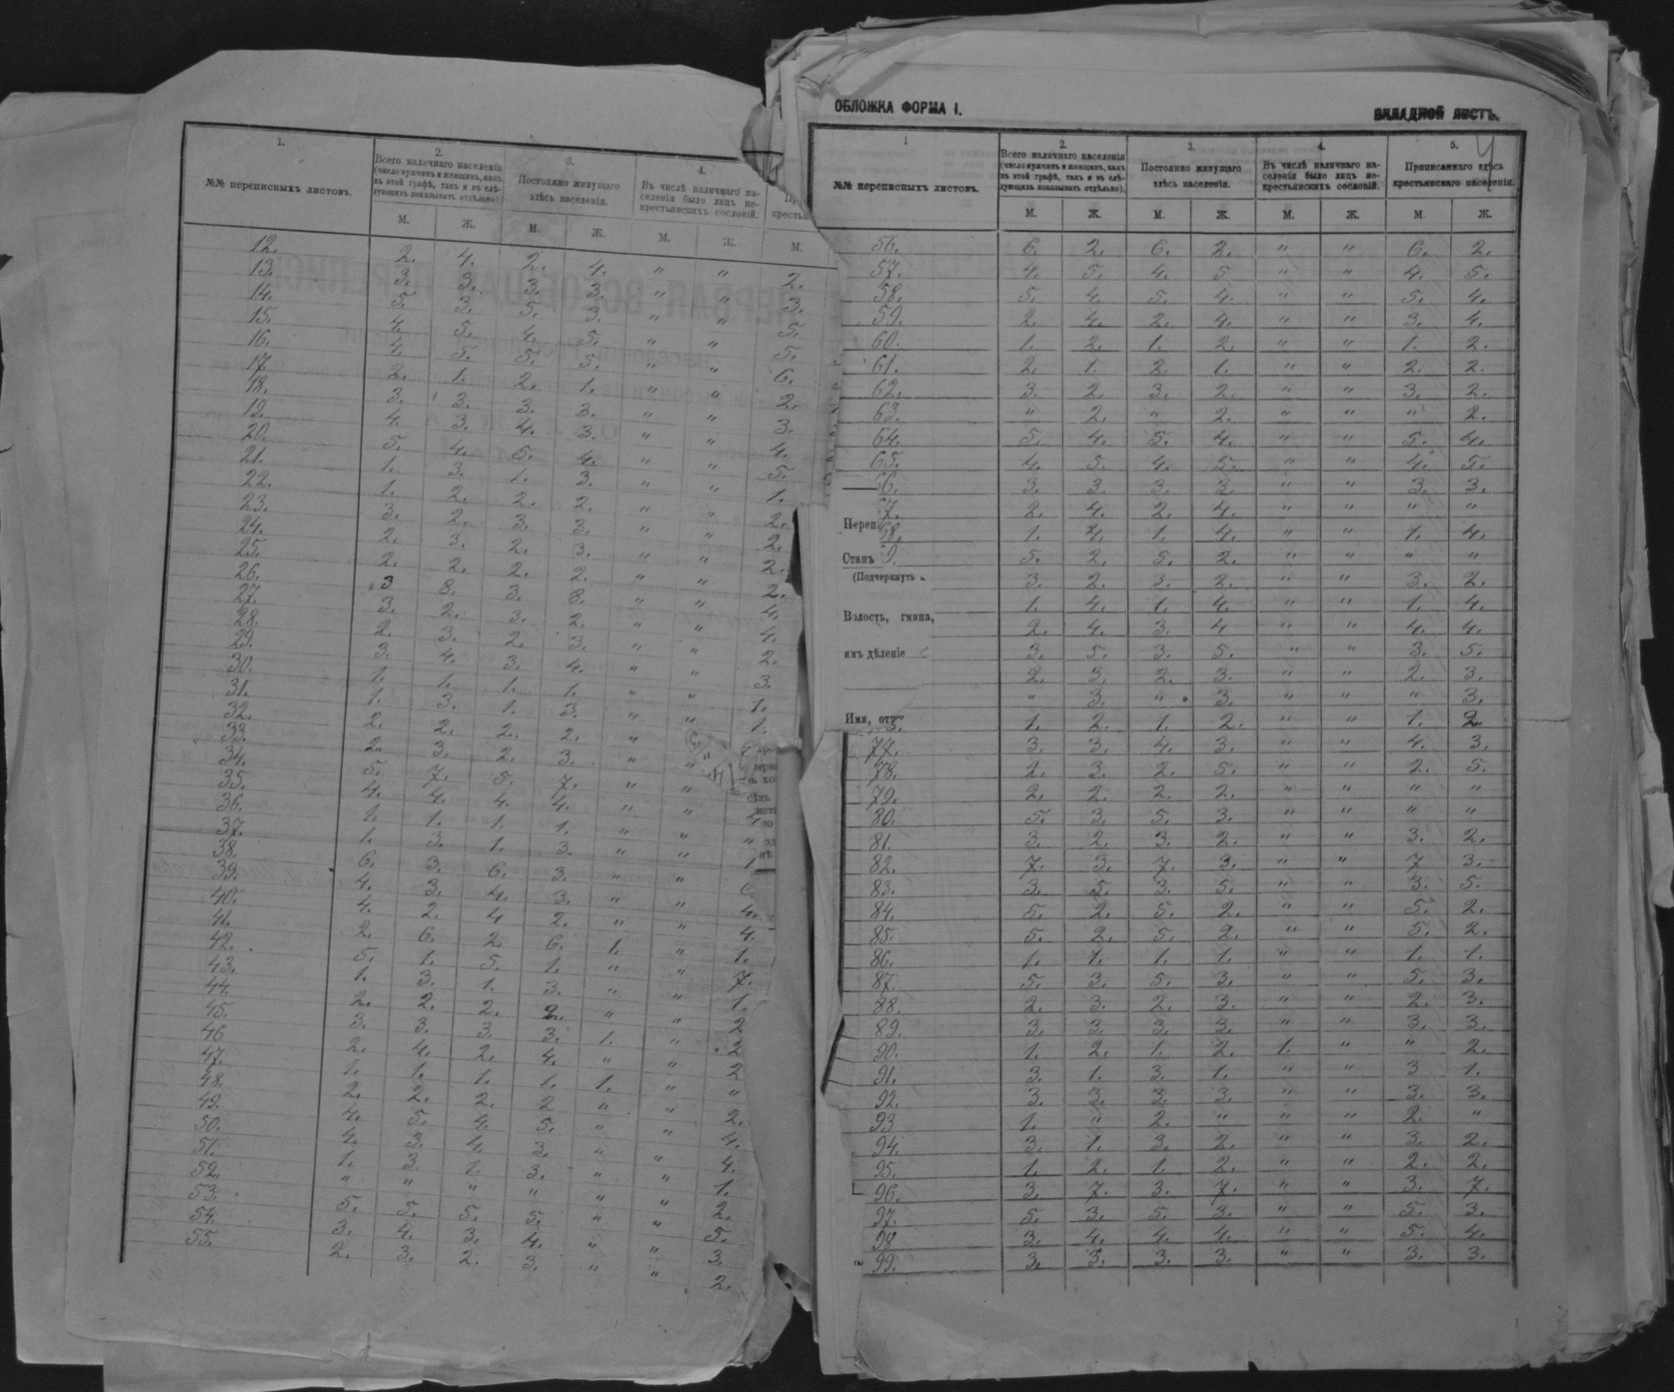 1.
2.
3.
4.
№№ переписныхъ листовъ.
Всего наличнаго населенія
(число мужчинъ и женщинъ, какъ
въ этой графѣ, такъ и въ слѣ-
дующихъ показывать отдѣльно)
Постоянно живущаго
здѣсь населенія.
Въ числѣ наличнаго на-
селенія было лицъ не-
крестьянскихъ сословій.
М. Ж. М. Ж. М. Ж. М.
12. 2. 4. 2. 4. " " 2.
13. 3. 3. 3. 3. " " 3.
14. 5. 3. 5. 3. " " 5.
15. 4. 5. 4. 5. " " 5.
16. 4. 5. 5. 5. " " 6.
17. 2. 1. 2. 1. " " 2.
18. 3. 3. 3. 3. " " 3.
19. 4. 3. 4. 3. " " 4.
20. 5. 4. 5. 4. " " 5.
21. 1. 3. 1. 3. " " 1.
22. 1. 2. 2. 2. " " 2.
23. 3. 2. 3. 3. " " 2.
24. 2. 3. 2. 3. " " 2.
25. 2. 2. 2. 2. " " 2.
26. 3 8. 3. 8. " " 4.
27. 3. 2. 3. 2. " " 4.
28. 2. 3. 2. 3. " " 2.
29. 3. 4. 3. 4. " " 3.
30. 1. 1. 1. 1. " " 1.
31. 1. 3. 1. 3. " " 1.
32. 2. 2. 2. 2. "
33. 2. 3. 2. 3. " "
34. 5. 7. 5. 7. " "
35. 4. 4. 4. 4. " " 4
36. 1. 1. 1. 1. " " "
37. 1. 3. 1. 3. " " 1
38. 6. 3. 6. 3. " "
39. 4. 3. 4. 3. " " 4.
40. 4. 2. 4 2. " " 4.
41. 2. 6. 2. 6. 1. " 1.
42. 5. 1. 5. 1. " " 7.
43. 1. 3. 1. 3. " " 1.
44 2. 2. 2. 2. " " 2
45. 3. 3. 3. 3. 1. " 2
46 2. 4. 2. 4. " " 2
47. 1. 1. 1. 1. 1. " "
48. 2. 2. 2. 2 " " 2.
49. 4. 5. 4. 5. " " 4.
50. 4. 3. 4. 3. " " 4.
51. 1. 3. 1. 3. " " 1.
52. " " " " " " 2.
53. 5. 5. 5. 5. " " 5.
54. 3. 4. 3. 4. " " 3.
55. 2. 3. 2. 3. " " 2.
ОБЛОЖКА ФОРМА I.
ВКЛАДНОЙ ЛИСТЪ.
1
2.
3.
4.
5.
№№ переписныхъ листовъ.
Всего наличнаго населенія
(число мужчинъ и женщинъ, какъ
въ этой графѣ, такъ и въ слѣ-
дующихъ показывать отдѣльно).
Постоянно живущаго
здѣсь населенія.
Въ числѣ наличнаго на-
селенія было лицъ не-
крестьянскихъ сословій.
Приписаннаго здѣсь
крестьянскаго населенія.
М. Ж. М. Ж. М. Ж. М. Ж.
56. 6. 2. 6. 2. " " 6. 2.
57. 4. 5. 4. 5 " " 4. 5.
58. 5. 4. 5. 4. " " 5. 4.
59. 2. 4. 2. 4. " " 3. 4.
60. 1. 2. 1. 2. " " 1. 2.
61. 2. 1. 2. 1. " " 2. 2.
62. 3. 2. 3. 2. " " 3. 2.
63. " 2. " 2. " " " 2.
64. 5. 4. 5. 4. " " 5. 4.
65. 4. 5. 4. 5. " " 4. 5.
6. 3. 3. 3. 3. " " 3. 3.
7. 2. 4. 2. 4. " " " "
Переп
68. 1. 4. 1. 4. " " 1. 4.
Станъ 9. 5. 2. 5. 2. " " " "
(Подчеркнуть 3. 2. 3. 2. " " 3. 2.
1. 4. 1. 4. " " 1. 4.
Волость, гмина, 2. 4. 3. 4 " " 4. 4.
ихъ дѣленіе 3. 5. 3. 5. " " 3. 5.
2. 3. 2. 3. " " 2. 3.
" 3. " 3. " " " 3.
Имя, отч 1. 2. 1. 2. " " 1. 2.
77. 3. 3. 4. 3. " " 4. 3.
78. 2. 3. 2. 5. " " 2. 5.
79. 2. 2. 2. 2. " " " "
80. 5. 3. 5. 3. " " " "
81. 3. 2. 3. 2. " " 3. 2.
82. 7. 3. 7. 3. " " 7 3.
83. 3. 5. 3. 5. " " 3. 5.
84. 5. 2. 5. 2. " " 5. 2.
85. 5. 2. 5. 2. " " 5. 2.
86. 1. 1. 1. 1. " " 1. 1.
87. 5. 3. 5. 3. " " 5. 3.
88. 2. 3. 2. 3. " " 2. 3.
89. 3. 3. 3. 3. " " 3. 3.
90. 1. 2. 1. 2. 1. " " 2.
91. 3. 1. 3. 1. " " 3 1.
92. 3. 3. 3. 3. " " 3. 3.
93 1. " 2. " " " 2. "
94. 3. 1. 3. 2. " " 3. 2.
95. 1. 2. 1. 2. " " 2. 2.
96. 3. 7. 3. 7. " " 3. 7.
97. 5. 3. 5. 3. " " 5. 3.
98 3. 4. 4. 4. " " 5. 4.
99. 3. 3. 3. 3. " " 3. 3.